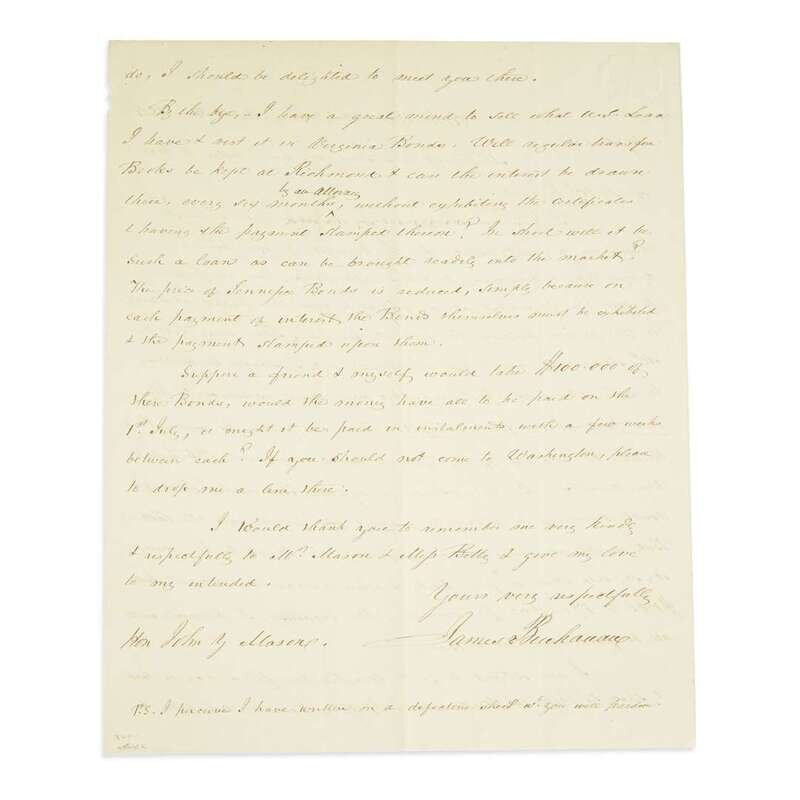 do, I should be delighted to meet you there.
By the bye, – I have a great mind to sell what Loan
I have & vest it in Virginia Bonds. Will regular transfer
Books be kept at Richmond & can the interest be drawn
by an attorney
there, every six months, without exhibiting the Certificates
& having the payment stamped thereon? In short will it be
such a loan as can be brought readily into the market?
The price of Bonds is reduced, simply because on
each payment of interest the Bonds themselves must be exhibited
& the payment stamped upon them.
Suppose a friend & myself would take $100.000 of
these Bonds, would the money have all to be paid on the
1st July, or might it be paid in instalments with a few weeks
between each? If you should not come to Washington, please
to drop me a line there.
I would thank you to remember me very kindly
& respectfully to Mrs Mason & Miss Betty & give my love
to my intended.
Yours very respectfully
James Buchanan
Hon John Y Mason.
P.S. I perceive I have written on a defective sheet you will pardon.